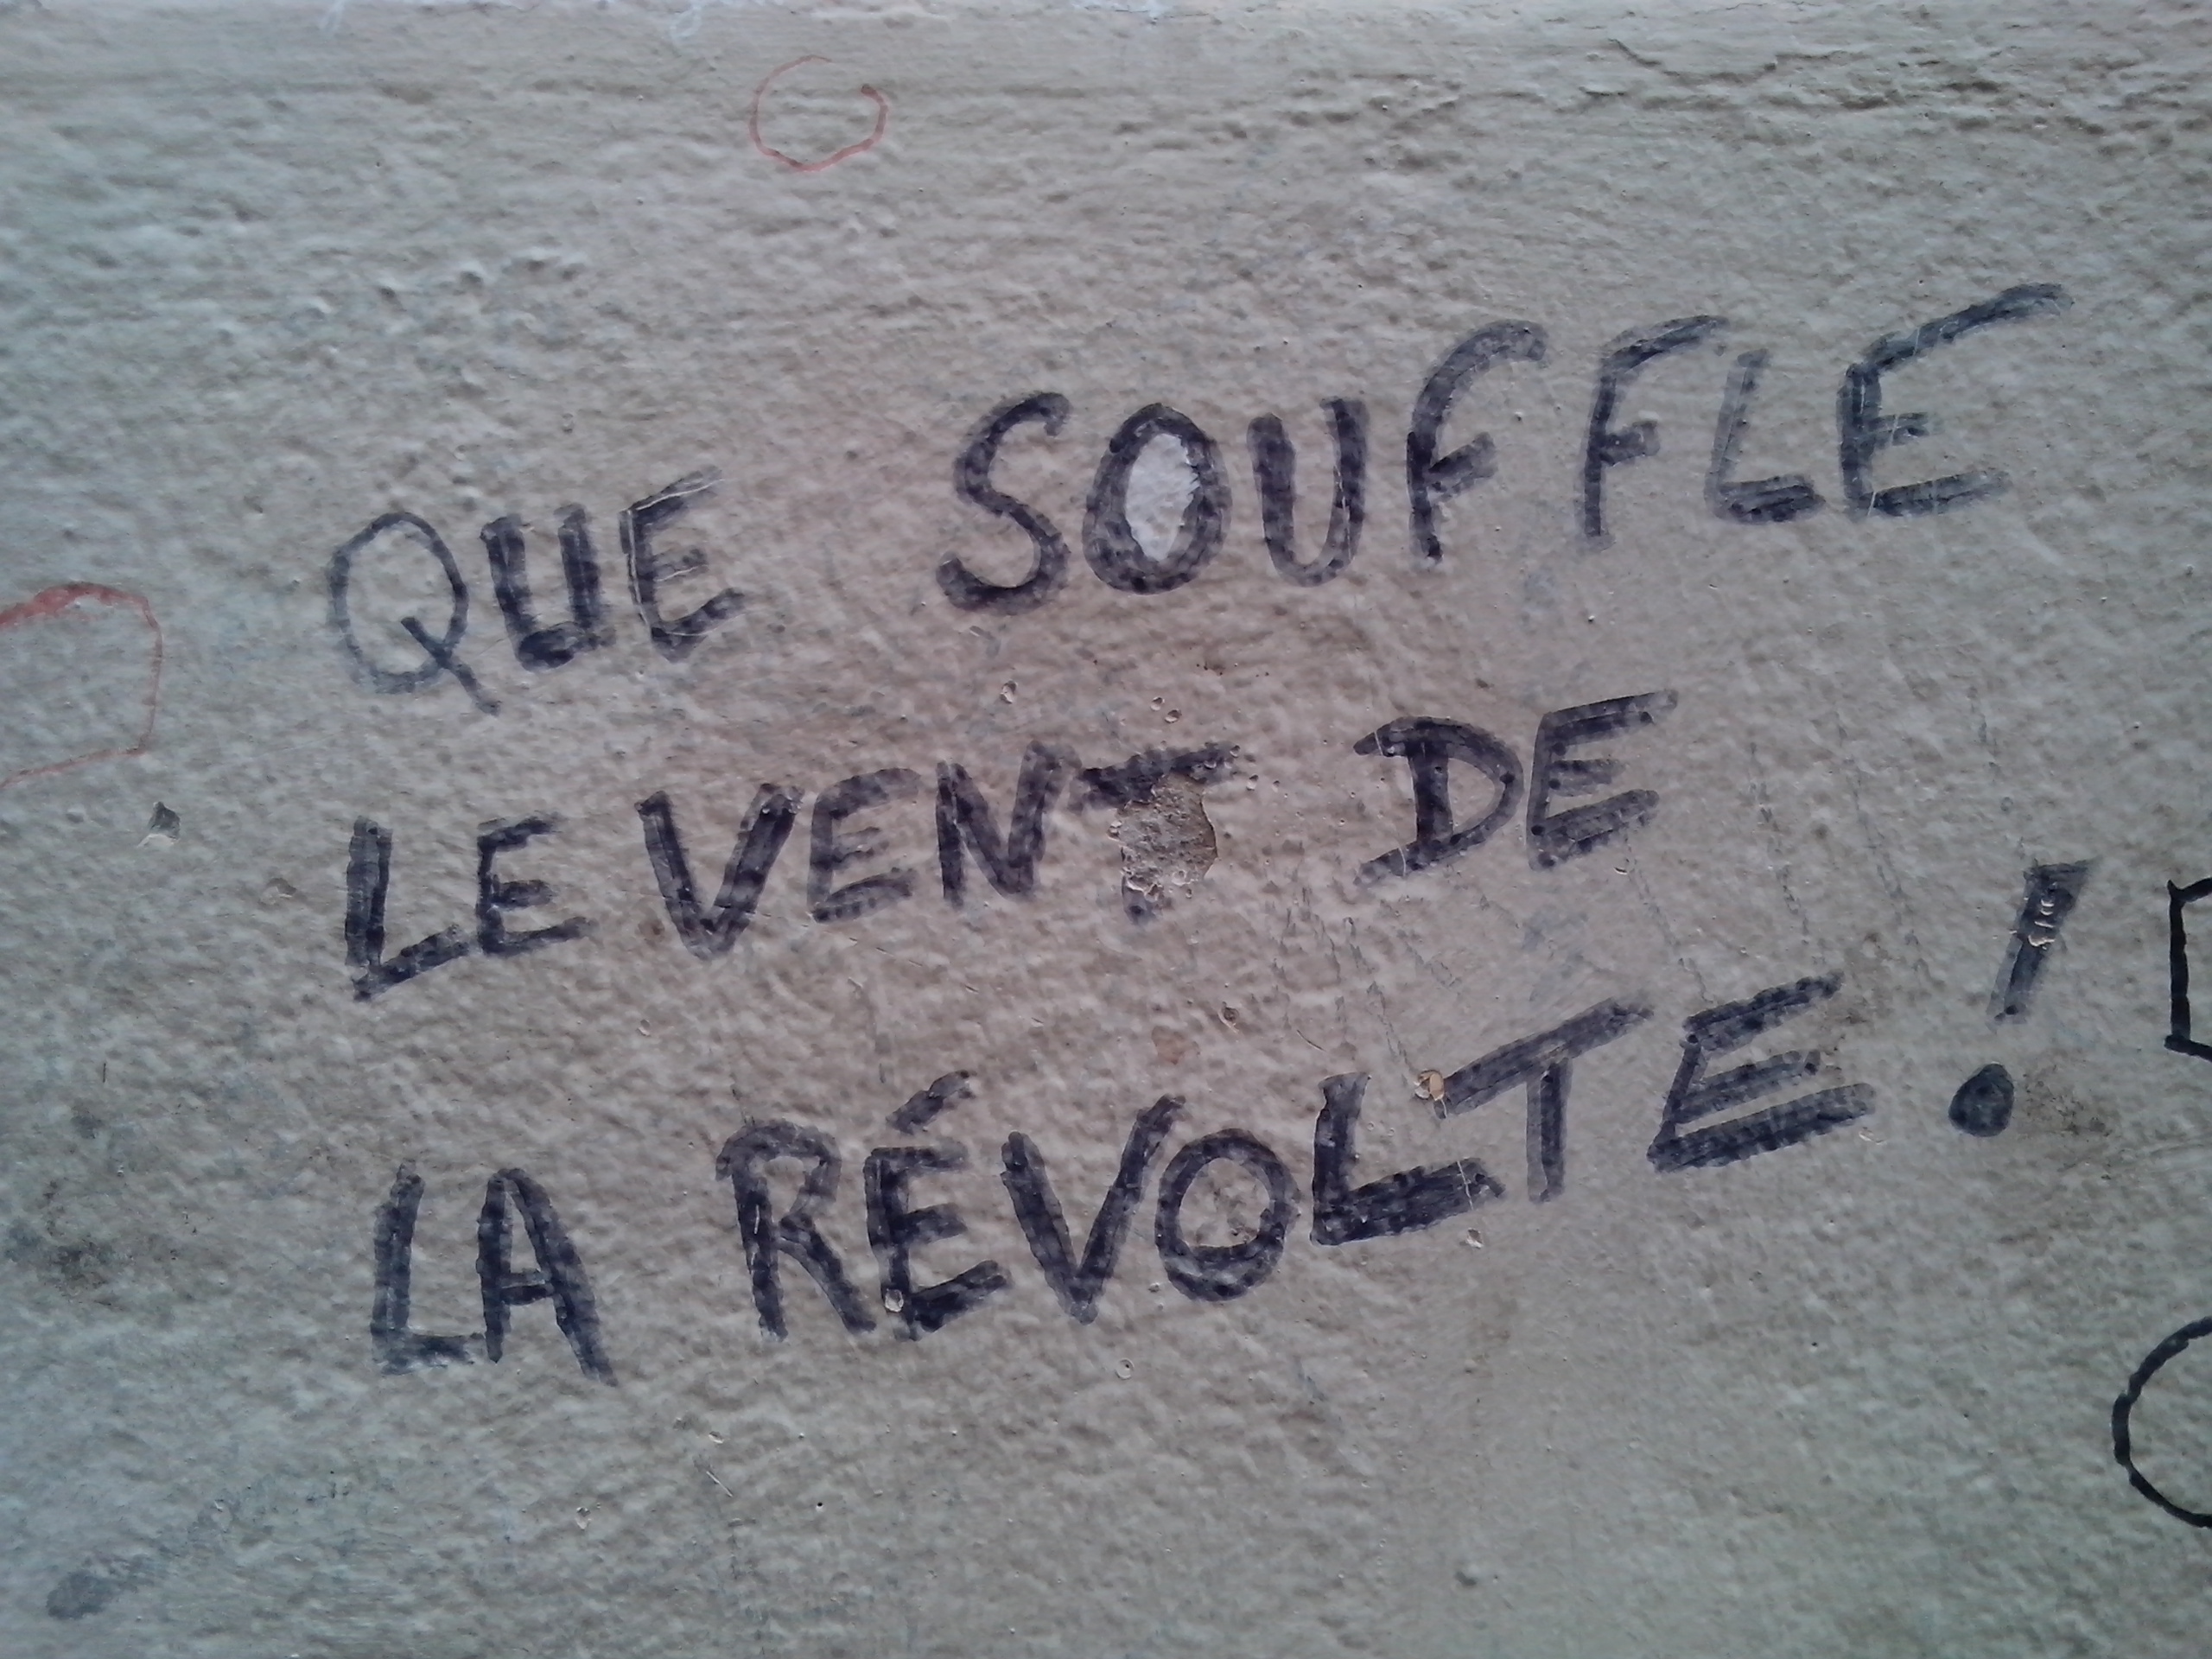 QUE SOUFFLE
LE VENT DE
LA RÉVOLTE !